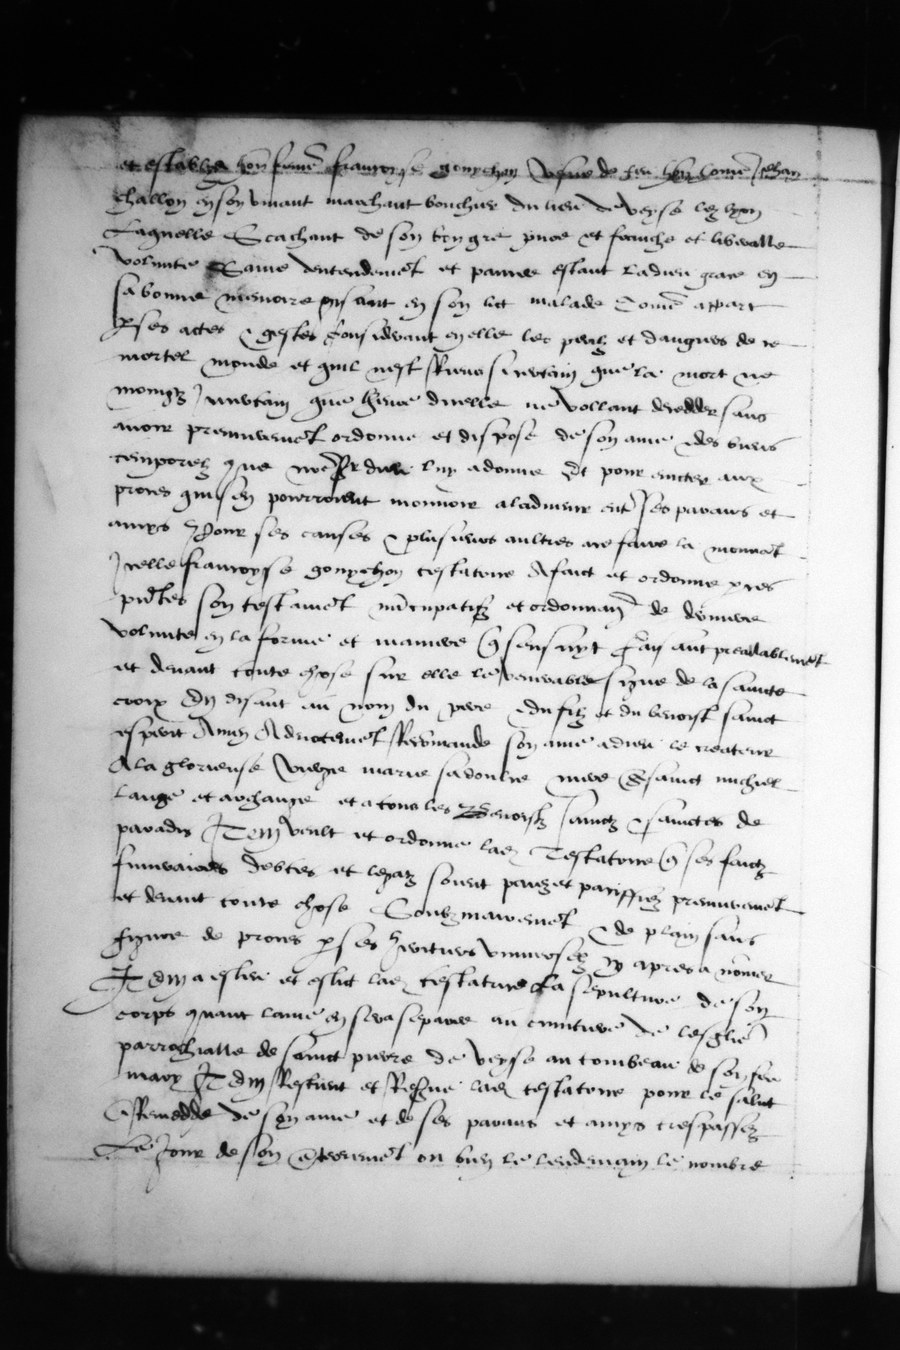 et establye hon femme francoyse gonychon vefve de feu hon home Jehan
Challon en son vivant marchant bouchier du lieu de veyse lez lyon
Laquelle Scachant de son bon gre pure et franche et liberalle
volunte Saine dentendement et pancee estant ladieu grace en
sa bonne memoire gisant en son lict malade Come appart
p ses actes & gestes Considerant en elle les perilz et dangiers de ce
mortel monde et quil nest Riens si certain que la mort ne
moingz Incertain que lheure dicelle ne vollant decedder sans
avoir premierement ordonne et dispose de son ame & des biens
temporelz que nre Sr dieu luy a donne Et pour eviter aux
proces qui en pourroient mouvoir a ladvenir ent ses parans et
amys Pour ses causes & plusieurs aultres a ce faire la mouvat
Icelle francoyse gonychon testatrice A faict et ordonne p ces
pntes son testamet nuncupatif et ordonnance de derniere
volunte en la forme et maniere q sensuyt faisant prealablement
et devant toute chose sur elle le venerable signe de la saincte
croix En disant au nom du pere & du filz et du benoist sainct
esperit Amen Et devotemet Recomande son ame a dieu le createur
A la glorieuse vierge marie sa doulce mere A sainct michiel
lange et archange et a tous les Benoistz sainctz & sainctes de
paradis Item veult et ordonne lad Testatrice q ses faictz
funeraires debtes et legatz soient payez et pariffiez premieremet
et devant toute chose Sommairemet & de plain sans
figure de proces p ses heritiers universelz cy apres a nomer
Item a eslire et eslit lad testatrice La sepulture de son
corps quant lame en sera separee au cimitiere de lesglise
parrochialle de sainct pierre de veyse au tombeau de son feu
mary Item Restient et Regue lad testatrice pour le salut
& Remedde de son ame et de ses parans et amys trespassez
Le Jour de son enterremet ou bien le lendemain le nombre